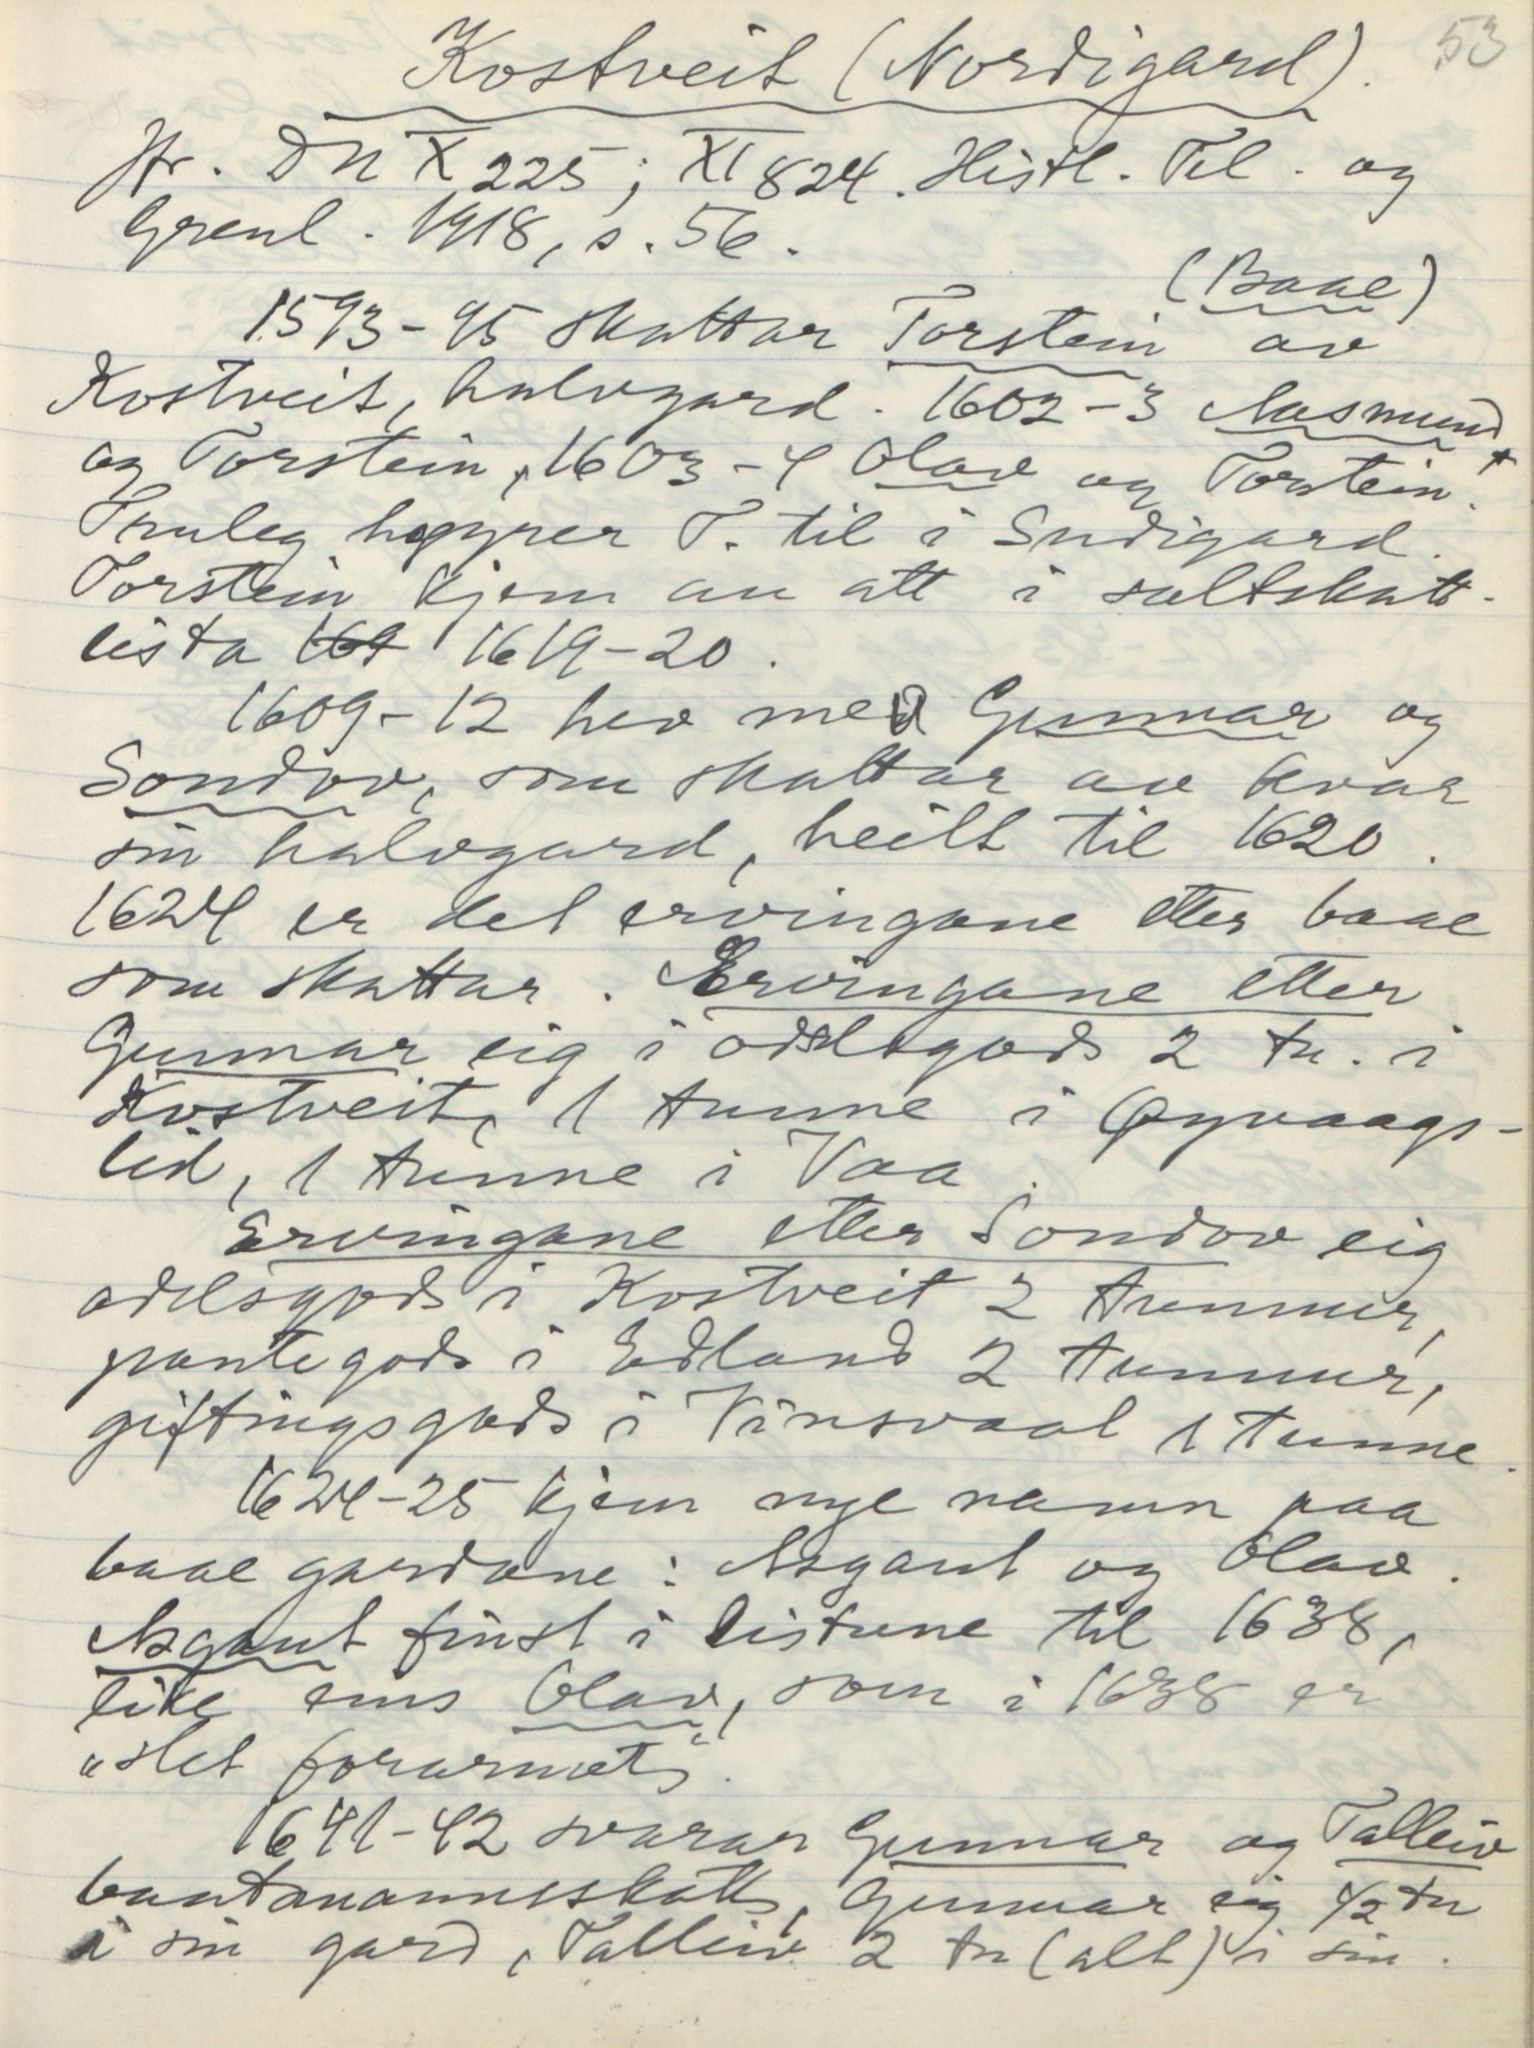 53
Kostveit (Nordigard).
Jfr. DN X 225; XI 824. Histl. Tel. og
Grenl. 1918, s. 56.
(Baae)
1593-95 skattar Torstein av
Kostveit, halvgard. 1602-3 Aasmund
og Torstein, 1603-4 Olav og Torstein.*
Truleg høyrer T. til i Sudigard.
Torstein kjem au att i saltskatt-
lista 161 1619-20.
1609-12 hev me Gunnar og
Sondov, som skattar av kvar
sin halvgard, heilt til 1620.
1624 er det ervingane etter baae
som skattar. Ervingane etter
Gunnar eig i odelsgods 2 tn. i
Kostveit, 1 tunne i Øyvaags-
lid, 1 tunne i Vaa.
Ervingane etter Sondov eig
odelsgods i Kostveit 2 tunnur,
pantegods i Edland 2 tunnur,
giftingsgods i Vinsvaal 1 tunne.
1624-25 kjem nye namn paa
baae gardane: Asgaut og Olav.
Asgaut finst i listune til 1638,
like eins Olav, som i 1638 er
"slet forarmet".
1641-42 svarar Gunnar og Talleiv
bautamannsskatt, Gunnar eig 1/2 tn
i sin gard, Talleiv 2 tn (alt) i sin.